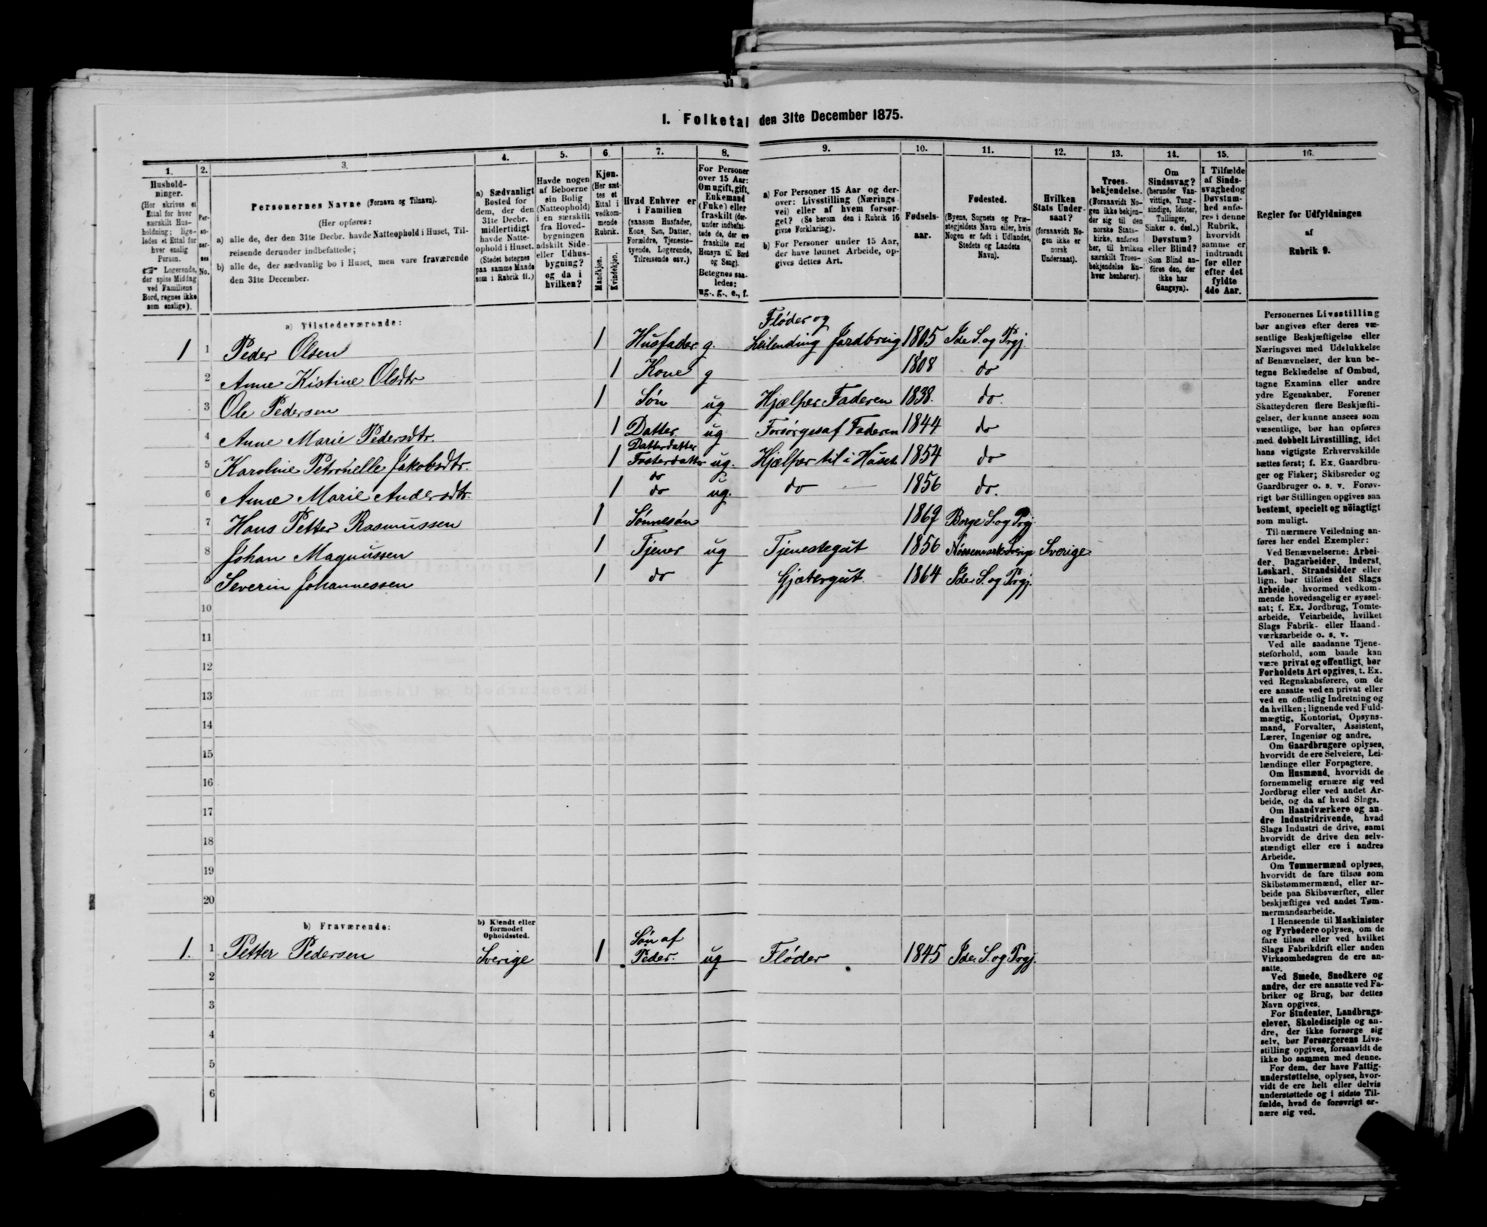 I. Folketal den 31te December 1875.
1. 2. 3. 4. 5. 6. 7. 8. 9. 10. 11. 12. 13. 14. 15. 16.
Husholdninger.
(Her skrives et Ettal for hver særskilt Husholdning; ligeledes et Ettal for hver enslig Person.
Logerende, der spise Middag ved Familiens Bord, regnes ikke som enslige).
Personernes No.
Personernes Navne (Fornavn og Tilnavn).
(Her opføres:
a) alle de, der den 31te Decbr. havde Natteophold i Huset, Tilreisende derunder indbefattede;
b) alle de, der sædvanlig bo i Huset, men vare fraværende den 31te December.
a) Sædvanligt Bosted for dem, der den 31te Decbr. midlertidigt havde Natteophold i Huset.
(Stedet betegnes paa samme Maade som i Rubrik 11.)
Havde nogen af Beboerne sin Bolig (Natteophold) i en særskilt fra Hovedbygningen adskilt Side- eller Udhusbygning? og da i hvilken?
Kjøn.
(Her sættes et Ettal i vedkommende Rubrik.
Mandkjøn. Kvindekjøn.
Hvad Enhver er i Familien
(saasom Husfader, Kone, Søn, Datter, Forældre, Tjenestetyende, Logerende, Tilreisende osv.)
For Personer over 15 Aar: Om ugift, gift, Enkemand (Enke) eller fraskilt
Betegnes saaledes: ug., g., e., f.
a) For Personer 15 Aar og derover: Livsstilling (Næringsvei) eller af hvem forsørget? (Se herom den i Rubrik 16 givne Forklaring).
b) For Personer under 15 Aar, der have lønnet Arbeide, opgives dettes Art.
Fødselsaar.
Fødested.
(Byens, Sognets og Præstegjeldets Navn eller, hvis Nogen er født i Udlandet, Stedets og Landets Navn).
Hvilken Stats Undersaat?
(forsaavidt Nogen ikke er norsk Undersaat).
Troesbekjendelse.
(Forsaavidt Nogen ikke bekjender sig til den norske Statskirke, anføres her, til hvilken særskilt Troesbekjendelse Enhver henhører).
Om Sindssvag?
(herunder Vanvittige, Tungsindige, Idioter, Tullinger, Sinker o. desl.)
Døvstum? eller Blind?
(Som Blind anføres den, der ikke har Gangsyn).
I Tilfælde af Sindssvaghed og Døvstumhed anføres i denne Rubrik, hvorvidt samme er indtraadt før eller efter det fyldte 4de Aar.
Regler for Udfyldningen af Rubrik 9.
a) Tilstedeværende:
1 1 Peder Olsen 1 Husfader g. Fløder og Leilending Jordbrug 1805 Ide S. og Prgj.
2 Anne Kistine Olsdtr 1 Kone g 1808 do
3 Ole Pedersen 1 Søn ug Hjælper Faderen 1838. do.
4 Anne Marie Pedersdtr. 1 Datter ug Forsørges af Faderen 1844 do
5 Karoline Petronelle Jakobsdtr. 1 Datterdatter Fosterdatter ug. Hjælper til i Huset 1854 do
6 Anne Marie Andersdtr 1 do do ug. do 1856 do.
7 Hans Petter Rasmussen 1 Sønnesøn 1869 Borge S. og Prgj.
8 Johan Magnussen 1 Tjener ug Tjenestegut 1856 Nøssemark Sverige Sverige
Severin Johannessen 1 do Gjætergut 1864 Ide S. og Prgj.
10
11
12
13
14
15
16
17
18
19
20
b) Fraværende:
b) Kjendt eller formodet Opholdssted.
1. 1 Petter Pedersen Sverige 1 Søn af Peder. ug Fløder 1845 Ide S. og Prgj.
2
3
4
5
6
Personernes Livsstilling
bør angives efter deres væsentlige Beskjæftigelse eller
Næringsvei med Udelukkelse
af Benævnelser, der kun betegne Beklædelse af Ombud,
tagne Examina eller andre
ydre Egenskaber. Forener
Skatteyderen flere Beskjæftigelser, der kunne ansees som
væsentlige, bør han opføres
med dobbelt Livsstilling, idet
hans vigtigste Erhvervskilde
sættes først; f. Ex. Gaardbruger og Fisker; Skibsreder og
Gaardbruger o. s. v. Forøvrigt bør Stillingen opgives saa
bestemt, specielt og nøiagtigt
som muligt.
Til nærmere Veiledning anføres her endel Exempler:
Ved Benævnelserne: Arbeider, Dagarbeider, Inderst,
Løskarl, Strandsidder eller
lign. bør tilføies det Slags
Arbeide, hvormed vedkommende hovedsagelig er sysselsat; f. Ex. Jordbrug, Tomtearbeide, Veiarbeide, hvilket
Slags Fabrik- eller Haandværksarbeide o. s. v.
Ved alle saadanne Tjenesteforhold, som baade kan
være privat og offentligt, bør
Forholdets Art opgives, t. Ex.
ved Regnskabsførere, om de
ere ansatte ved en privat eller
ved en offentlig Indretning og
da hvilken; lignende ved Fuldmægtig, Kontorist, Opsynsmand, Forvalter, Assistent,
Lærer, Ingeniør og andre.
Om Gaardbrugere oplyses,
hvorvidt de ere Selveiere, Leilændinge eller Forpagtere.
Om Husmænd, hvorvidt de
fornemmelig ernære sig ved
Jordbrug eller ved andet Arbeide, og da af hvad Slags.
Om Haandværkere og andre Industridrivende, hvad
Slags Industri de drive, samt
hvorvidt de drive den selvstændigt eller ere i andres
Arbeide.
Om Tømmermænd oplyses,
hvorvidt de fare tilsøs som
Skibstømmermænd, eller arbeide paa Skibsværfter, eller
beskjæftiges ved andet Tømmermandsarbeide.
I Henseende til Maskinister
og Fyrbødere oplyses, om de
fare tilsøs eller ved hvilket
Slags Fabrikdrift eller anden
Virksomhedsgren de ere ansatte.
Ved Smede, Snedkere og
andre, der ere ansatte ved Fabriker og Brug, bør dettes
Navn opgives.
For Studenter, Landbrugselever, Skoledisciple og andre, der ikke forsørge sig
selv, bør Forsørgerens Livsstilling opgives, forsaavidt de
ikke bo sammen med denne.
For dem, der have Fattigunderstøttelse, oplyses, hvorvidt de ere helt eller delvis
understøttede og i sidste Tilfælde, hvad de forøvrigt ernære sig ved.